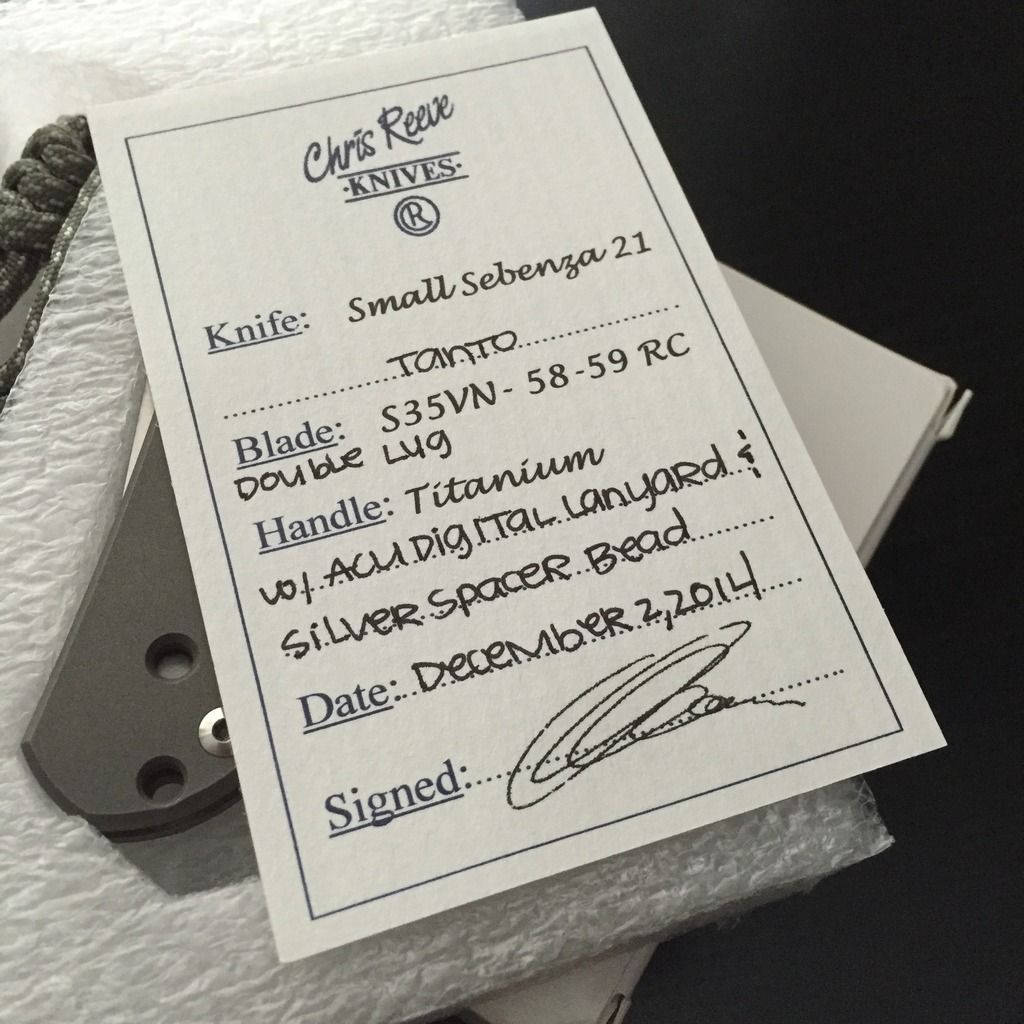 Chris Reeve
·KNIVES·
®
Knife: Small Sebenza 21
TANTO
Blade: S35VN - 58-59 RC
DOUBLE LUG
Handle: Titanium
W/ ACU DIGITAL LANYARD &
SILVER SPACER BEAD
Date: DECEMBER 2, 2014
Signed: